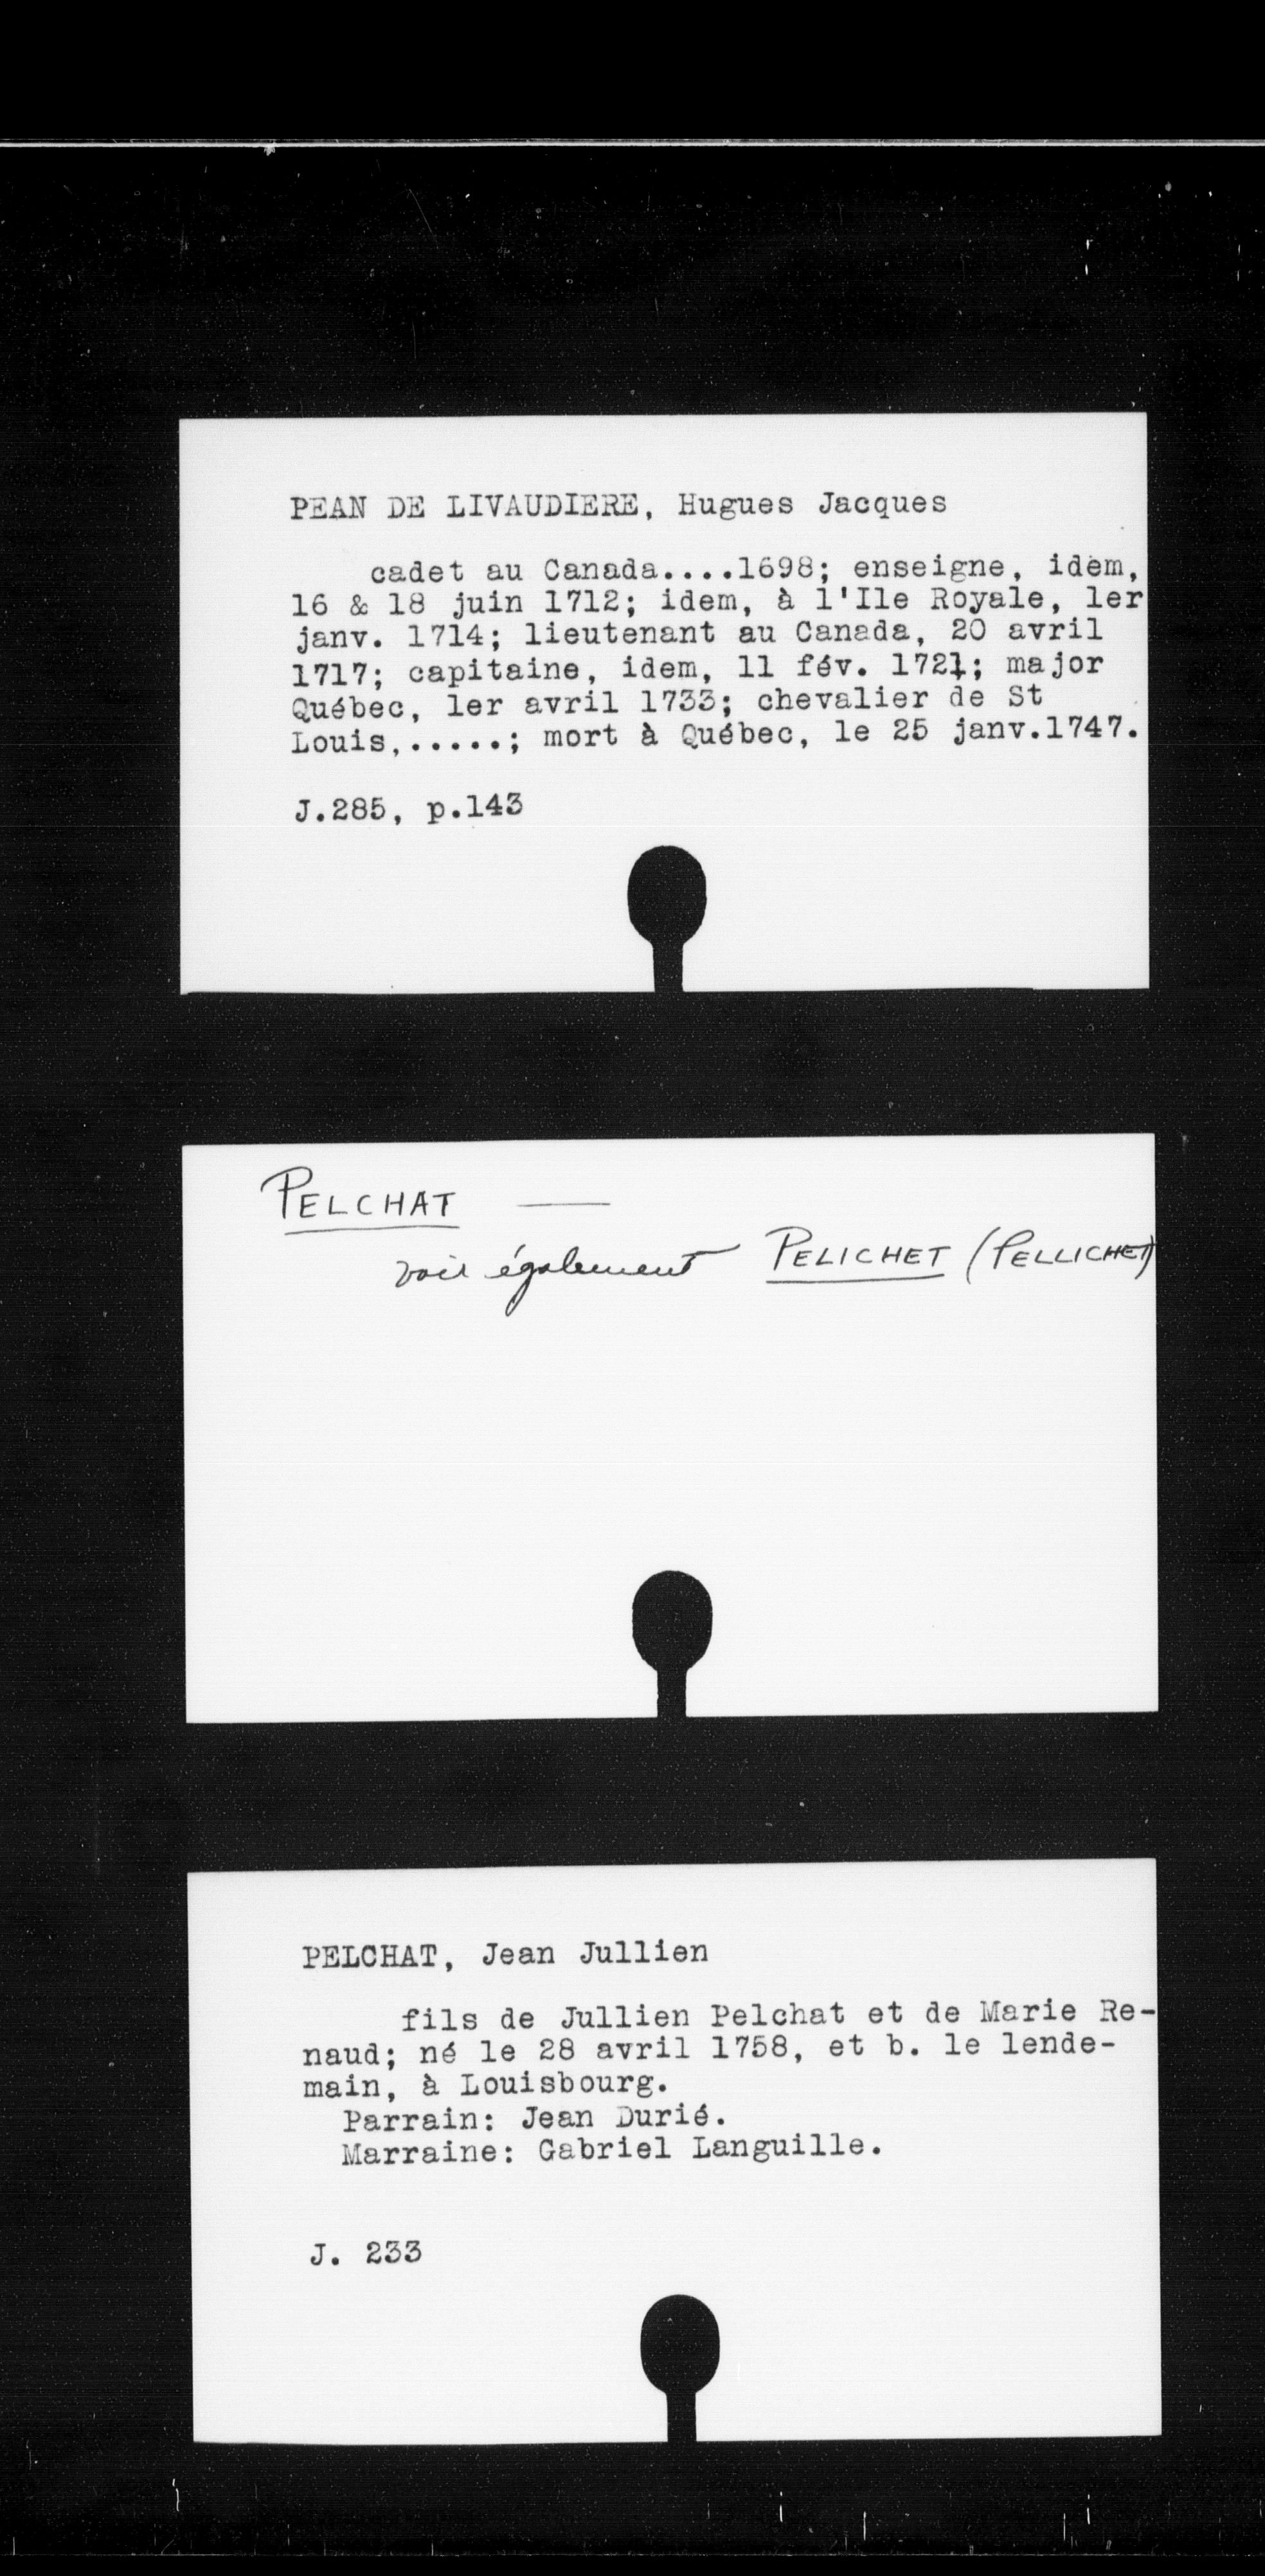 PEAN DE LIVAUDIERE, Hugues Jacques
cadet au Canada....1698; enseigne, idem,
16 & 18 juin 1712; idem, à l'Ile Royale, 1er
janv. 1714; lieutenant au Canada, 20 avril
1717; capitaine, idem, 11 fév. 1721; major
Québec, 1er avril 1733; chevalier de St
Louis,.....; mort à Québec, le 25 janv.1747.
J.285, p.143
PELCHAT —
voir également PELICHET (PELLICHET)
PELCHAT, Jean Jullien
fils de Jullien Pelchat et de Marie Re-
naud; né le 28 avril 1758, et b. le lende-
main, à Louisbourg.
Parrain: Jean Durié.
Marraine: Gabriel Languille.
J. 233